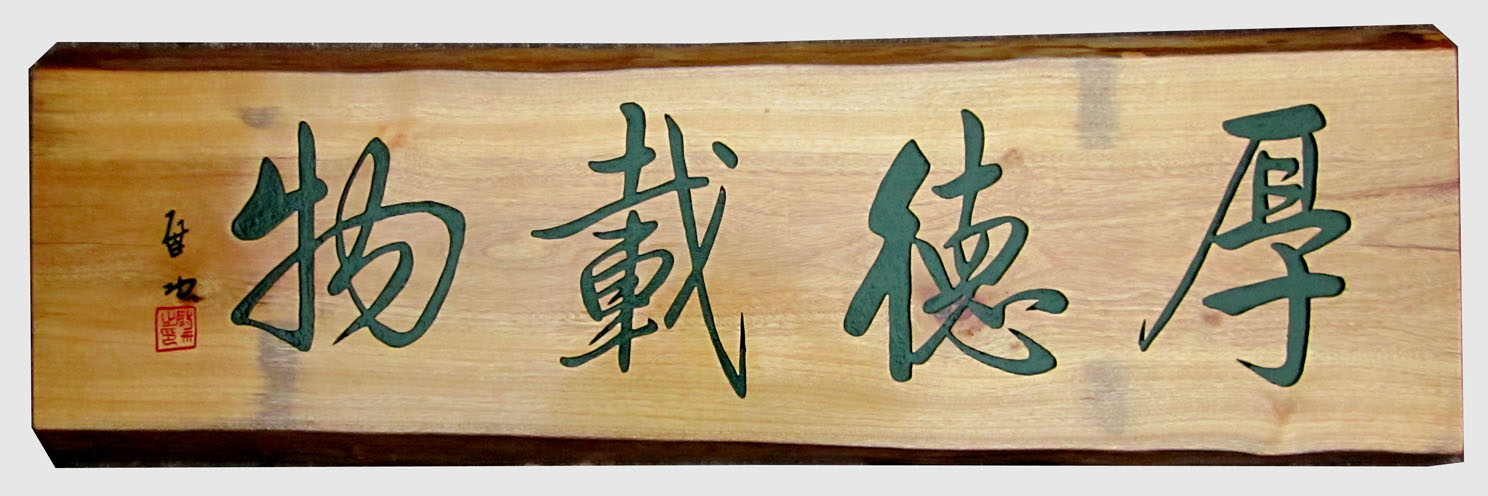 厚德載物
启功